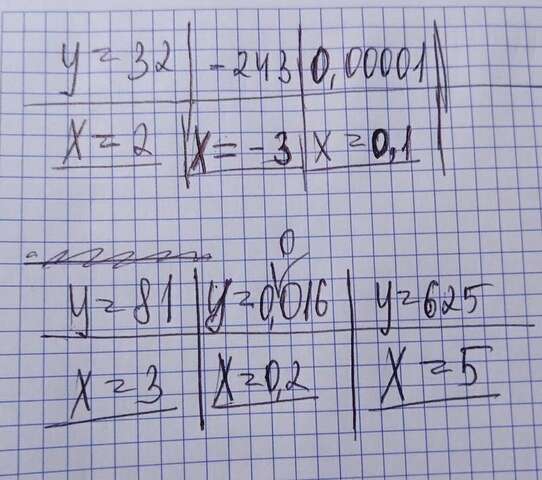 y = 32 | -243 | 0,00001 |
x = 2 | x = -3 | x = 0,1
0
y = 81 | y = 0,016 | y = 625
x = 3 | x = 0,2 | x = 5